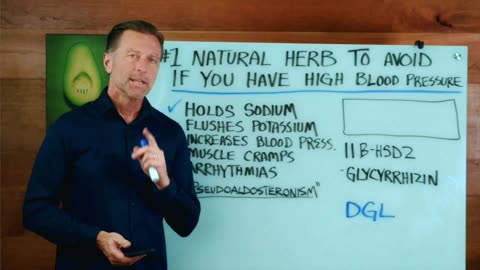 #1 NATURAL HERB TO AVOID
IF YOU HAVE HIGH BLOOD PRESSURE
✓ HOLDS SODIUM
FLUSHES POTASSIUM
INCREASES BLOOD PRESS.
MUSCLE CRAMPS
ARRHYTHMIAS
PSEUDOALDOSTERONISM"
11B-HSD2
-GLYCYRRHIZIN
DGL